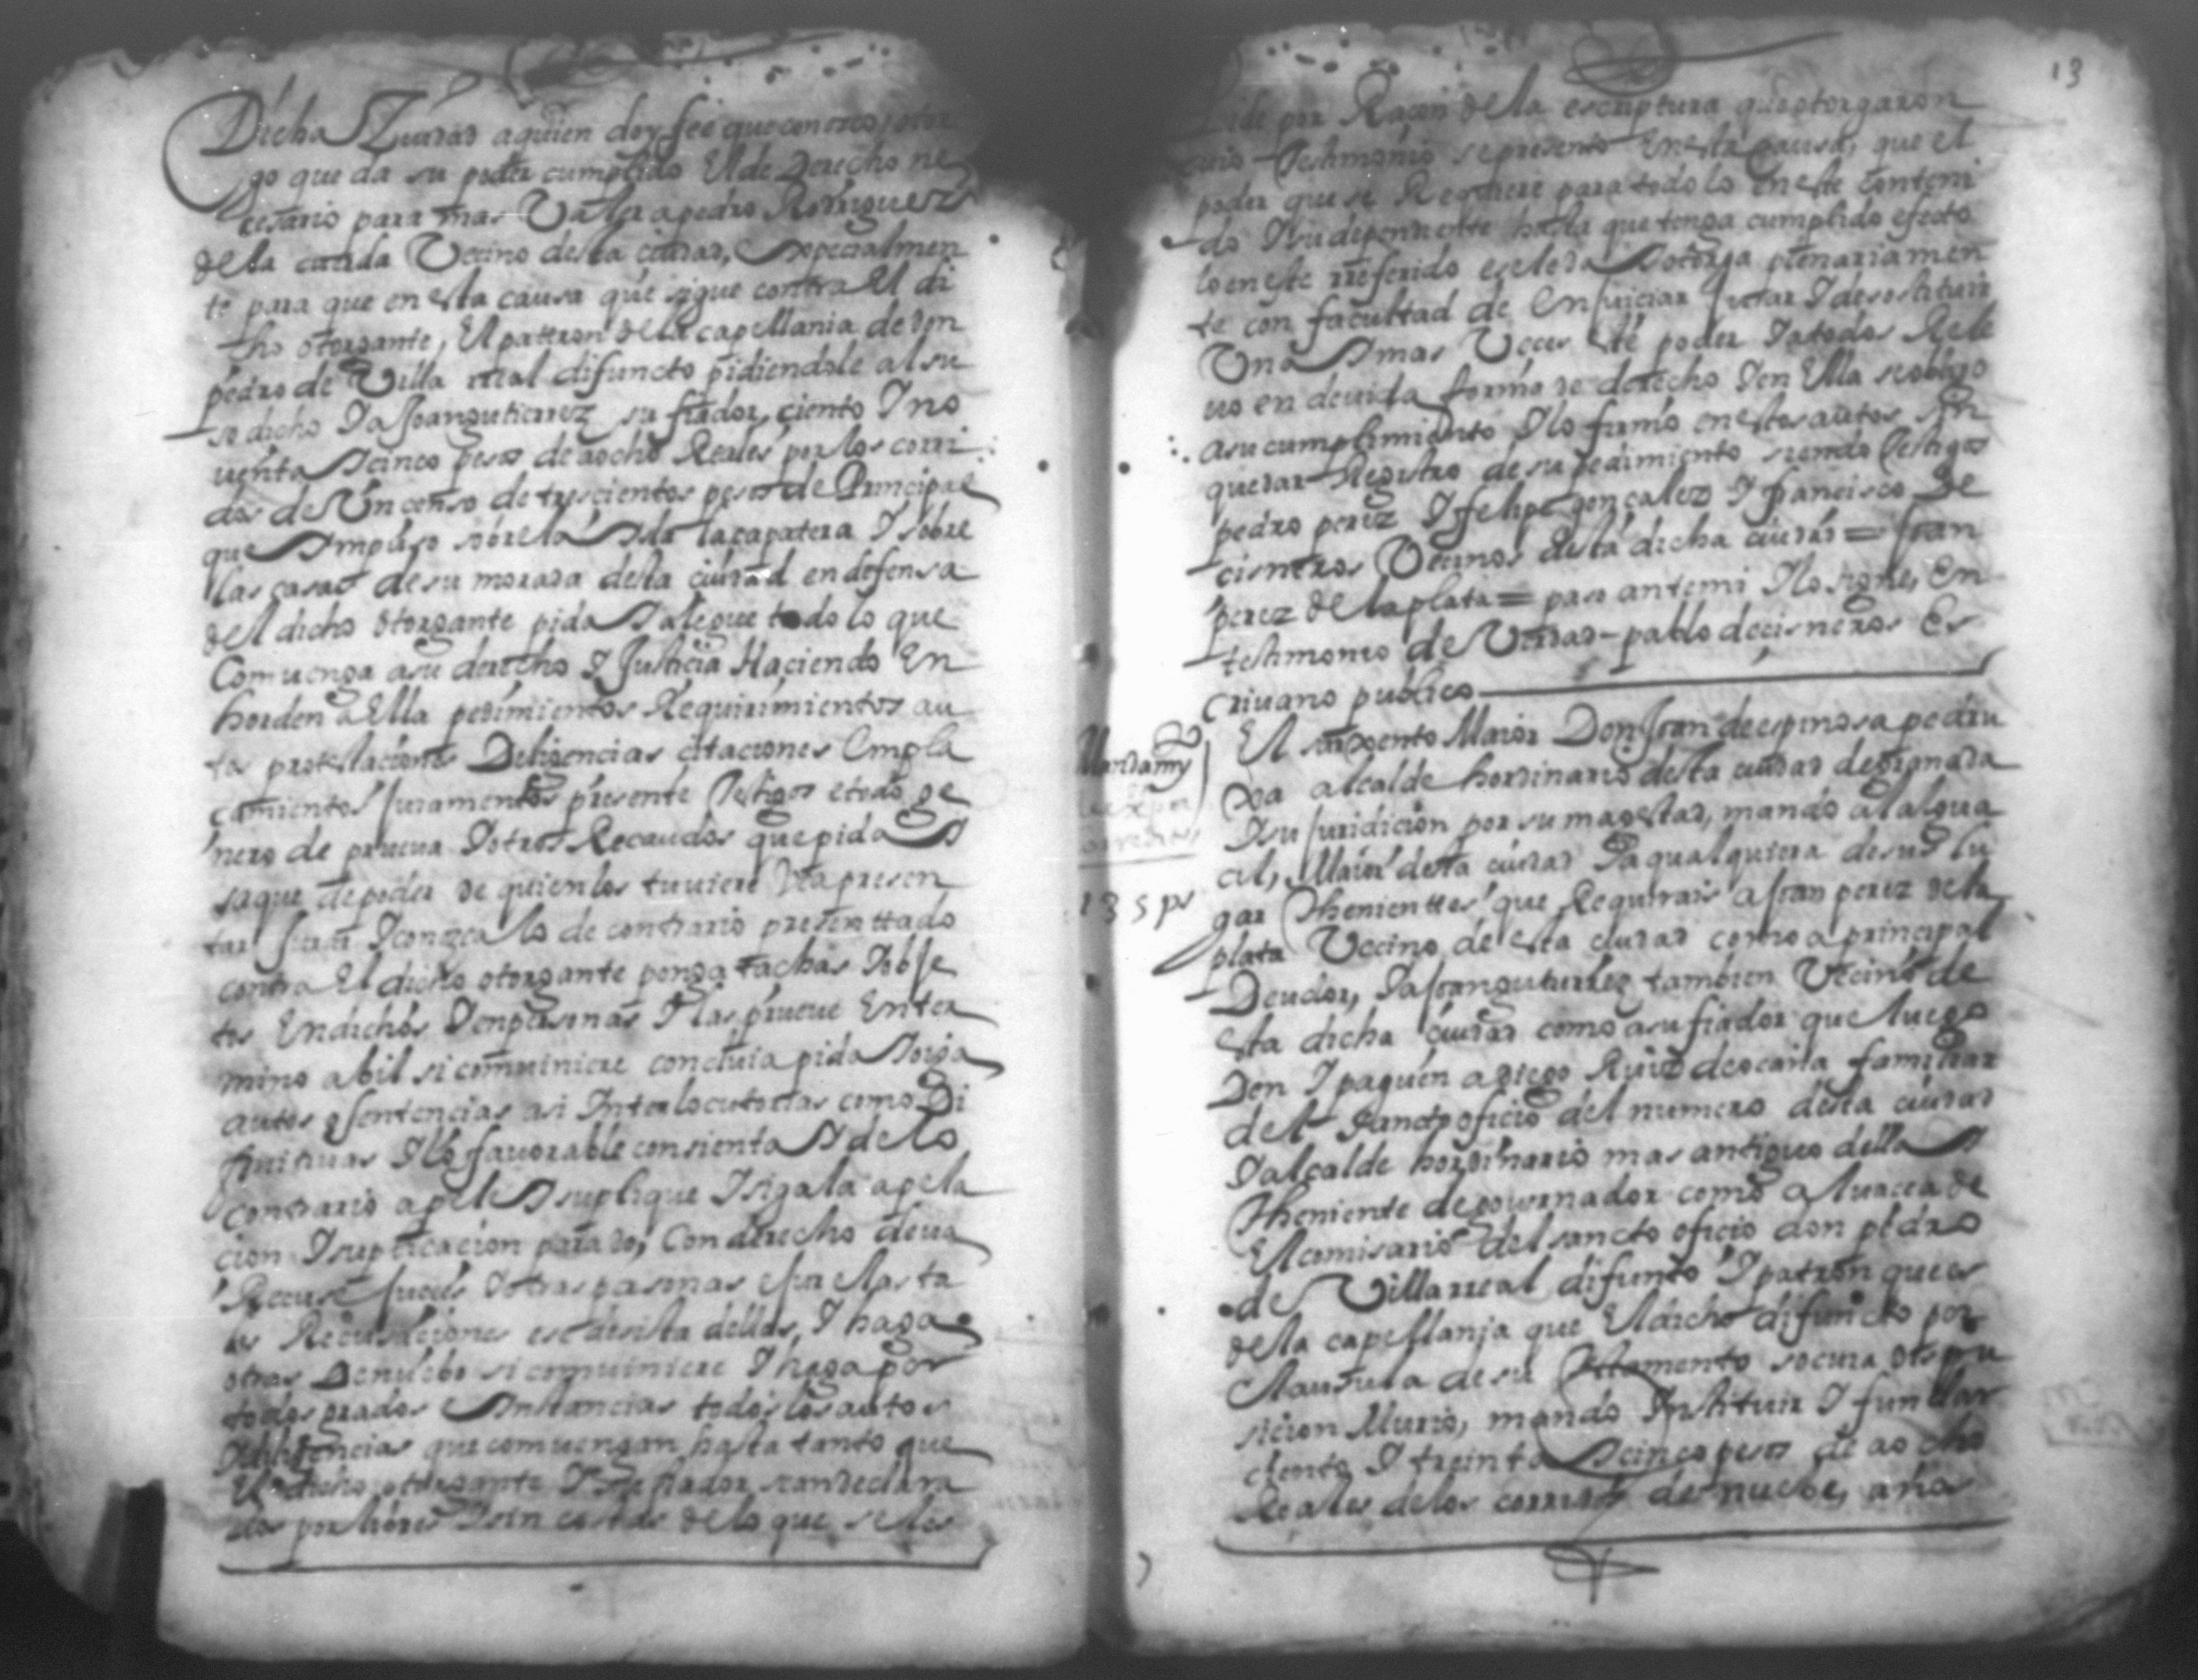 Dicha Ziudad aquien doy fee que conosco, otor
go que da su poder cumplido El de Derecho ne
cesario para mas Valer a pedro Rodriguez
de la carida Vecino desta ciudad, Especialmen
te para que en esta causa que sigue contra El di
cho otorgante, El pattron de la capellania de don
pedro de Villa rreal difuncto pidiendole al su
so dicho I a Joan gutierrez su fiador, ciento I no
uenta I cinco pesos de a ocho Reales por los corri
dos de Un censo de trescientos pesos de Principal
que Impuso sobre la Isla la çapatera I sobre
las casas de su morada desta ciudad en defensa
del dicho otorgante pida I alegue todo lo que
Comuenga a su derecho I Justicia Haciendo En
horden a Ella pedimientos Requirimientos au
tos protestaciones Deligencias citaciones Empla
çamientos Juramentos presente Testigos e todo ge
nero de prueua I otros Recaudos que pida I
saque de poder de quien los tuuiere Vea presen
tar Jurar I conozca lo de contrario presenttado
contra El dicho otorgante ponga tachas I obje
tos En dichos I en personas I las prueue En ter
mino abil si comuiniere concluia pida I oiga
autos o sentencias asi Interlocutorias como Di
finitiuas I lo favorable consienta I de lo
contrario apele I suplique I siga la apela
cion I suplicacion para do, Con derecho deua
Recuse Jueces I otras personas
las Recusaciones e se desista dellas, I haga
otras De nuebo si comuiniere I haga por
todos grados E Instancias todos los autos
I diligencias que comuengan hasta tanto que
El dicho otorgante I su fiador sean declara
dos por libres I sin costas de lo que se les
13
Pide por Raçon de la escriptura que otorgaron
cuio Testimonio se presento En esta causa, que el
poder que se Requiere para todo lo en este conteni
do I su dependiente hasta que tenga cumplido efecto
lo en este rreferido ese le da I otorga plenariamen
te con facultad de En Juiciar Jurar I de sostituir
Una I mas Veces este poder I a todos Rele
uo en deuida forma de derecho I en Ella se obligo
a su cumplimiento I lo firmo en estos autos sin
quedar Registro de su pedimiento siendo Testigos
pedro perez I felipe gonçalez I francisco De
cisneros Vecinos desta dicha ciudad = Joan
perez de la plata = paso ante mi I lo signe, En
testimonio de Verdad - pablo de cisneros Es
criuano publico
Mandamy
135 ps
El sargento Maior Don Joan de espinosa pedru
xa alcalde hordinario desta ciudad de granada
I su Juridicion por su magestad, mando al algua
cil, Maior desta ciudad I a qualquiera de sus lu
gar Thenienttes que Requirais a Joan perez de la
plata Vecino de esta ciudad como a principal
Deudor, I a Joan gutierrez tambien Vecino de
esta dicha ciudad como a su fiador que luego
Den I paguen a Diego Ruiz de ocaña familiar
del Sancto oficio del numero desta ciudad
I alcalde hordinario mas antiguo della I
Theniente de gouernador como albacea de
El comisario del sancto oficio don pedro
de Villarreal difunto I patron que es
de la capellania que El dicho difuncto por
Clausula de su Testamento so cuia dispu
sicion Murio, mando Instituir I fundar
ciento I treinta I cinco pesos de a ocho
Reales de los corridos de nuebe, años